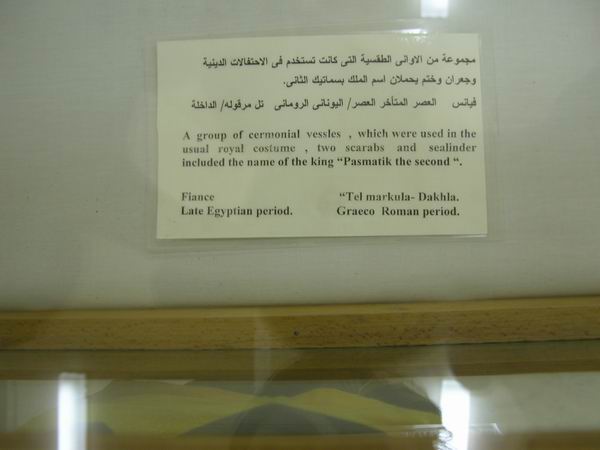 مجموعة من الاوانى الطقسية التى كانت تستخدم فى الاحتفالات الدينية
وجعران وختم يحملان اسم الملك بسماتيك الثانى.
فيانس العصر المتأخر العصر/ اليونانى الرومانى تل مرقوله/ الداخلة
A group of cermonial vessles , which were used in the
usual royal costume , two scarabs and sealinder
included the name of the king “Pasmatik the second “.
Fiance “Tel markula- Dakhla.
Late Egyptian period. Graeco Roman period.